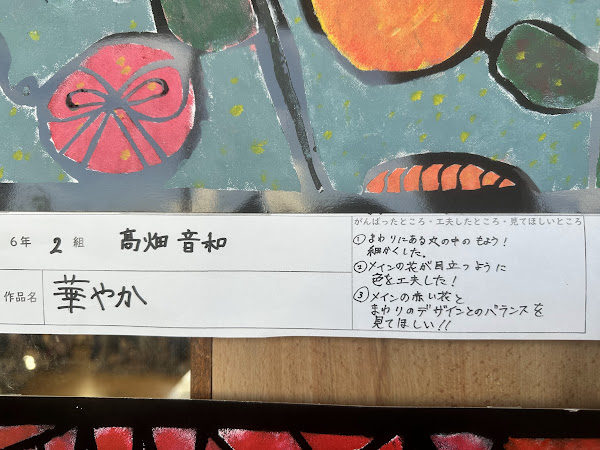 6年 2 組 高畑 音和
作品名 華やか
がんばったところ・工夫したところ・見てほしいところ
① まわりにある丸の中のもよう!
細かくした。
② メインの花が目立つように
色を工夫した!
③ メインの赤い花と
まわりのデザインとのバランスを
見てほしい!!